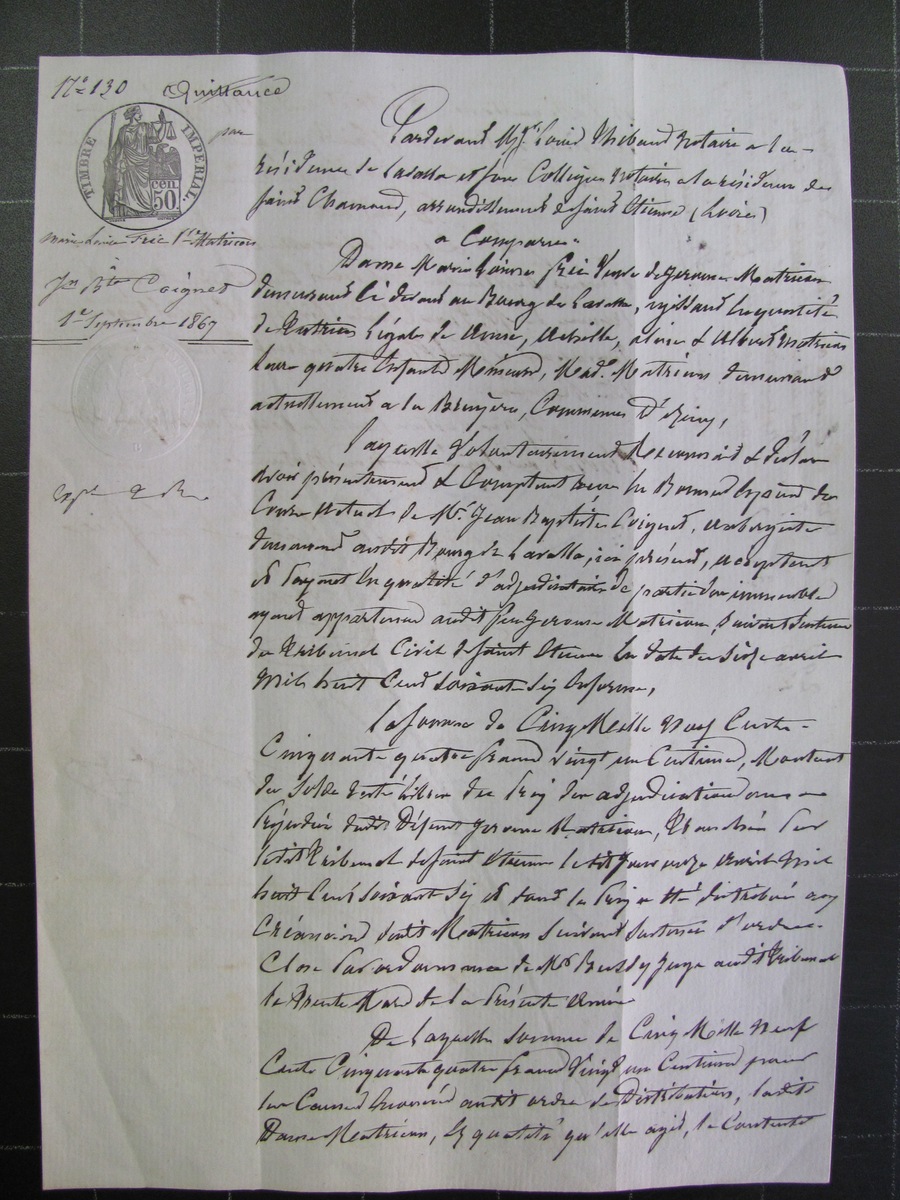 N° 130 Quittance
par
TIMBRE IMPERIAL.
50 cen
Marie Louise Fric Ve Matricon
à
Jn Bte Coignet
1er Septembre 1867
Pardevant Me Louis Thibaud Notaire a la
résidence de Lavalla et son Collègue Notaire a la résidence de
saint Chamond, arrondissement de saint Etienne (Loire)
a Comparu
Dame Marie Louise Fric Veuve de Jerome Matricon
demeurant ci devant au Bourg de Lavalla, agissant en qualité
de Tutrice légale de Annie, Achille, et Albert Matricon
leurs quatre Enfants Mineurs, Made Matricon demeurant
actuellement a la Bruyère, Commune D'Izieux,
Laquelle Volontairement Reconnait & Déclare
avoir présentement & Comptant reçu en Bonnes espèces de
Cours actuel de Mr Jean Baptiste Coignet, aubergiste
demeurant audit Bourg de Lavalla, ici présent, acceptant
et payant en qualité d'adjudicataire de partie des immeubles
ayant appartenu audit feu Jerome Matricon, suivant Sentence
du Tribunal Civil de saint Etienne en date du Seize avril
Mil huit Cent soixante Six Enforme,
La somme de Cinq Mille Neuf Cents
Cinquante quatre francs Vingt un Centimes, Montant
du Solde resté du Prix des adjudications
audit Défunt Jerome Matricon, Tranchées par
ledit Tribunal de saint Etienne ledit jour avril Mil
huit Cent Soixante Six et dont le Prix a été distribué aux
Créanciers dudit Matricon Suivant Sentence d'ordre
Close par ordonnance de Mr Juge audit Tribunal
le Trente Mars de la présente Année
De Laquelle somme de Cinq Mille Neuf
Cents Cinquante quatre francs Vingt un Centimes pour
les Causes énoncées audit ordre de Distribution, ladite
Dame Matricon, Es qualité qu'elle agit, Se Contente